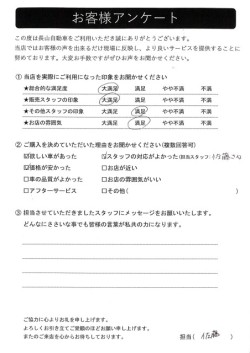 お客様アンケート
この度は長山自動車をご利用いただき誠にありがとうございます。
当店ではお客様の声を出来るだけ現場に反映し、より良いサービスを提供することに
努めております。大変お手数ですがぜひお声をお聞かせください。
① 当店を実際にご利用になった印象をお聞かせください
★総合的な満足度 大満足 満足 やや不満 不満
★販売スタッフの印象 大満足 満足 やや不満 不満
★その他スタッフの印象 大満足 満足 やや不満 不満
★お店の雰囲気 大満足 満足 やや不満 不満
② ご購入を決めていただいた理由をお聞かせください(複数回答可)
☑欲しい車があった ☑スタッフの対応がよかった(担当スタッフ: 佐藤さん)
☑価格が安かった □お店が近い
□車の品質がよかった □お店の雰囲気がいい
□アフターサービス □その他( )
③ 担当させていただきましたスタッフにメッセージをお願いいたします。
どんなにささいな事でも皆様の言葉が私共の力になります。
ご協力に心よりお礼を申し上げます。
よろしくお引き立てご愛顧のほどお願い申し上げます。
またのご来店を心からお待ちしております。 担当( 佐藤 )